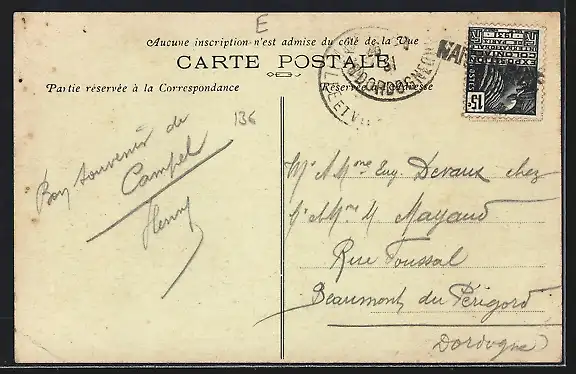 E
Aucune inscription n'est admise du côté de la Vue
CARTE POSTALE
Partie réservée à la Correspondance
Réservé à l'Adresse
136
Bon souvenir de
Campel
Henry
Mr & Mme Eug. Devaux chez
Mr & Mme M Mayaud
Rue Toussal
Beaumont du Périgord
Dordogne
31
DORDOGNE
POSTES
15c